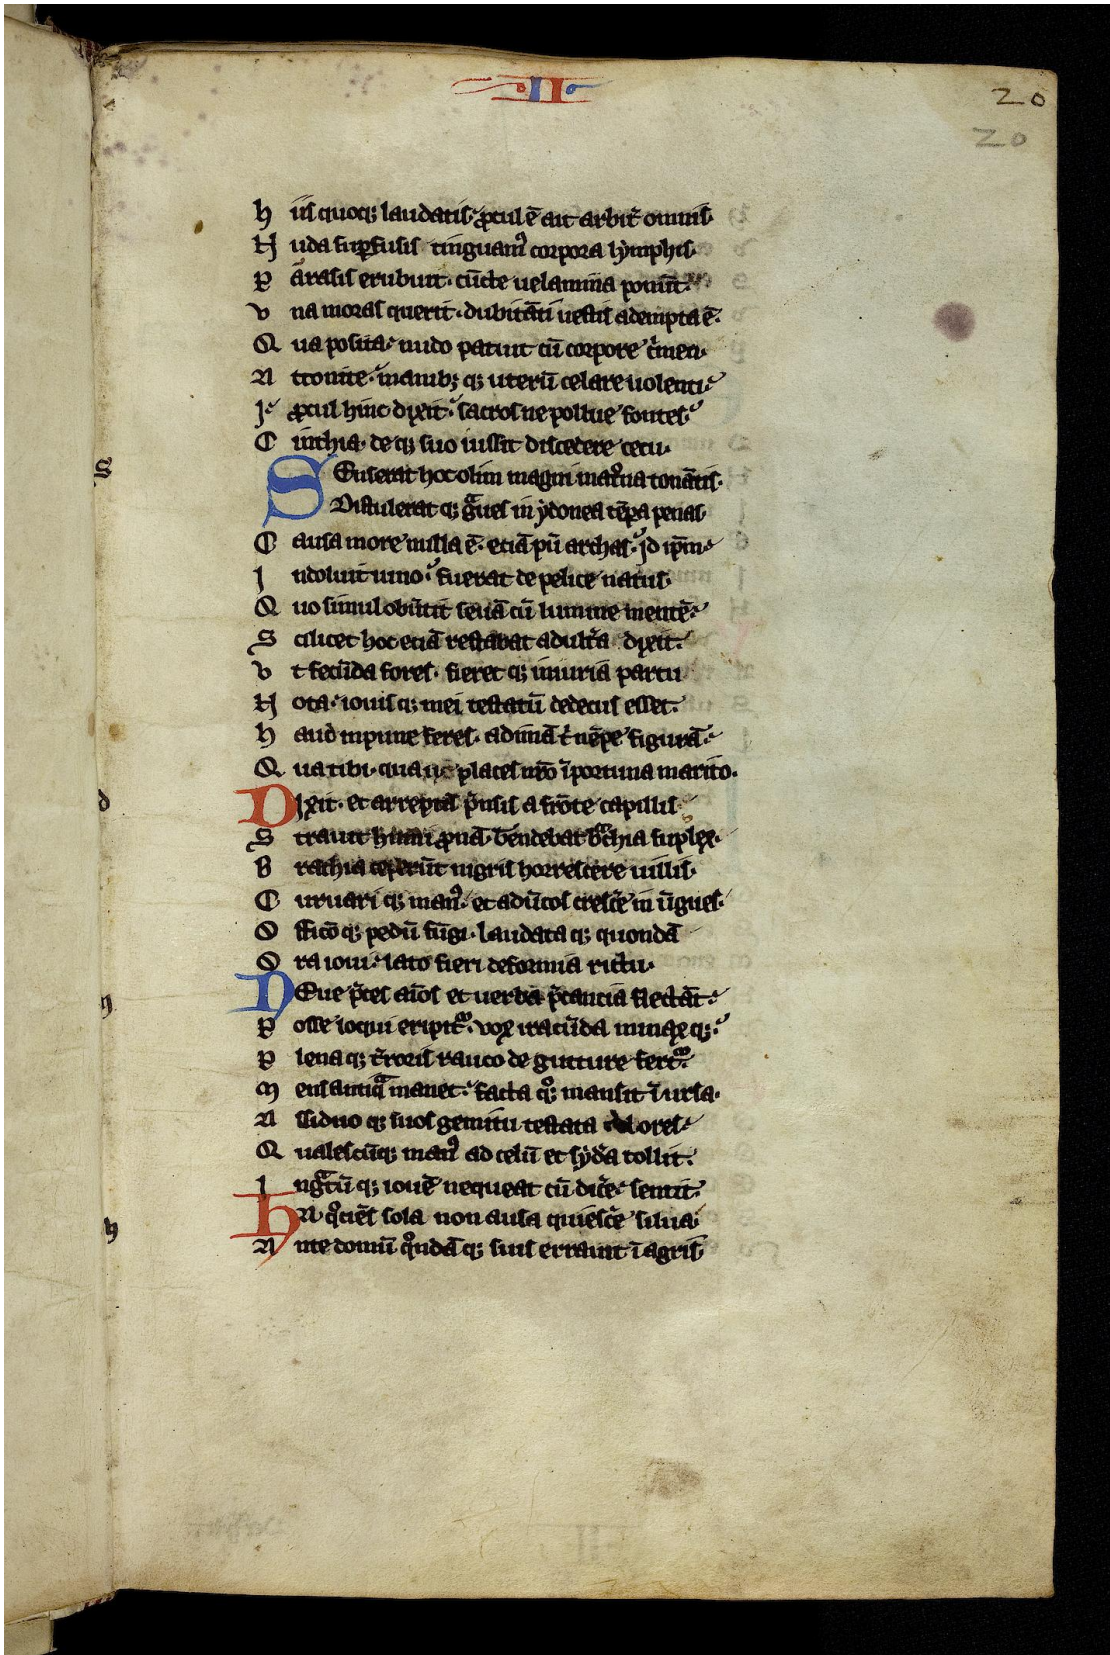 II
20
20
h iis quoq; laudatis. ꝓcul ē ait arbit̉ omnis.
N uda suꝑfusis tinguamꝰ corpora lymphis.
P arasis erubuit. cūcte uelamina ponūt.
v na moras querit. dubitāti uestis adempta ē.
Q ua posita. nudo patuit cū corpore c̉men.
A ttonite. manib; q; uterū celare uolenti.
I. ꝓcul hinc dixit. sacros ne pollue fontes.
C inthia. de q; suo iussit discedere cetu.
S Enserat hoc olim magni mat̉na tonātis.
Distulerat q; g̃ues in ydonea tēpa penas.
C ausa more nulla ē. etiā pū archas. id ip̄m.
I ndoluit iuno. fuerat de pelice natus.
Q uo simul obūtit seuā cū lumine mentē.
S cilicet hoc etiā restabat adult̉a dixit.
v t fecūda fores. fieret q; iniuria partu
N ota. iouis q; mei testatū dedecus esset.
h aud inpune feres. adimā t̉ nēpe figurā.
Q ua tibi. qua places nr̄o īportuna marito.
D Ixit. et arreptis p̉nsis a frōte capillis.
S trauit humi ꝓnā. tendebat bͣchia suplex.
B rachia ceperūt nigris horrescere uillis.
C uruari q; manꝰ. et adūcos cresc̉e in ūgues.
O fficō q; pedū fūgi. laudata q; quondā
O ra ioui. lato fieri deformia rictu.
N Eue p̉ces aīos et uerba p̉cantia flectāt.
P osse loqui eripit᷑. vox iracūda minax q;
P lena q; t̉roris rauco de gutture fert᷑.
M ens antiqͣ manet. facta qͦ; mansit ī ursa.
A ssiduo q; suos gemitu testata dolores.
Q ualescūq; manꝰ ad celū et syd̉a tollit.
I ngͣtū q; iouē nequeat cū dic̉e. sentit.
h A qͦciēs sola non ausa quiesc̉e silua.
A nte domū qͦndā q; suis errauit ī agris.
s
d
n
h